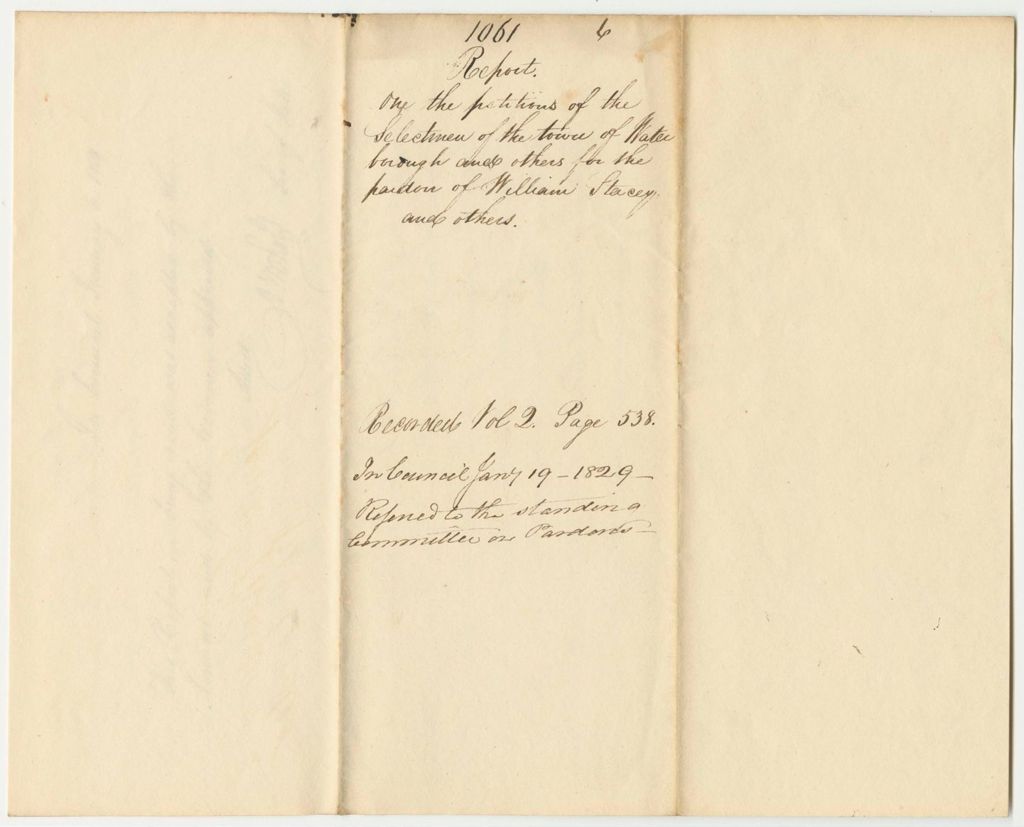 1061 6
Report.
On the petitions of the
Selectmen of the town of Water
borough and others for the
pardon of William Stacey
and others.
Recorded Vol 2. Page 538.
In Council Jany 19 - 1829 -
Referred to the standing
Committee on Pardons -